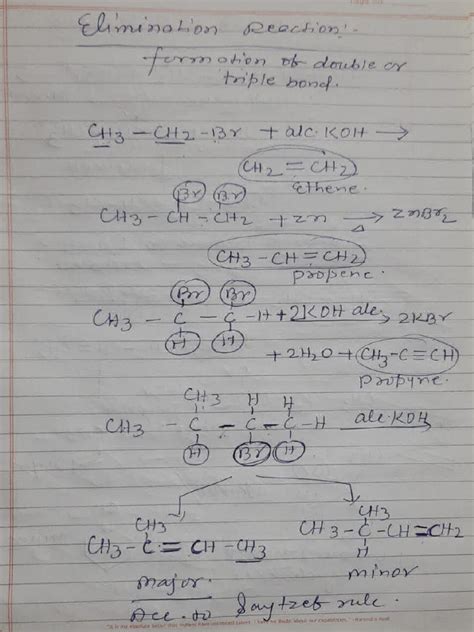 Elimination Reaction:-
formation of double or
triple bond.
CH3 - CH2 - Br + alc. KOH →
CH2 = CH2
Ethene.
Br Br
CH3 - CH - CH2 + Zn → ZnBr2
Δ
CH3 - CH = CH2
propene.
Br Br
CH3 - C - C - H + 2KOH alc → 2KBr
H H
+ 2H2O + CH3 - C ≡ CH
propyne.
CH3 H H
CH3 - C - C - C - H alc. KOH
H Br H
CH3 CH3
CH3 - C = CH - CH3 CH3 - C - CH = CH2
H
major. minor
Acc. to Saytzeb rule.